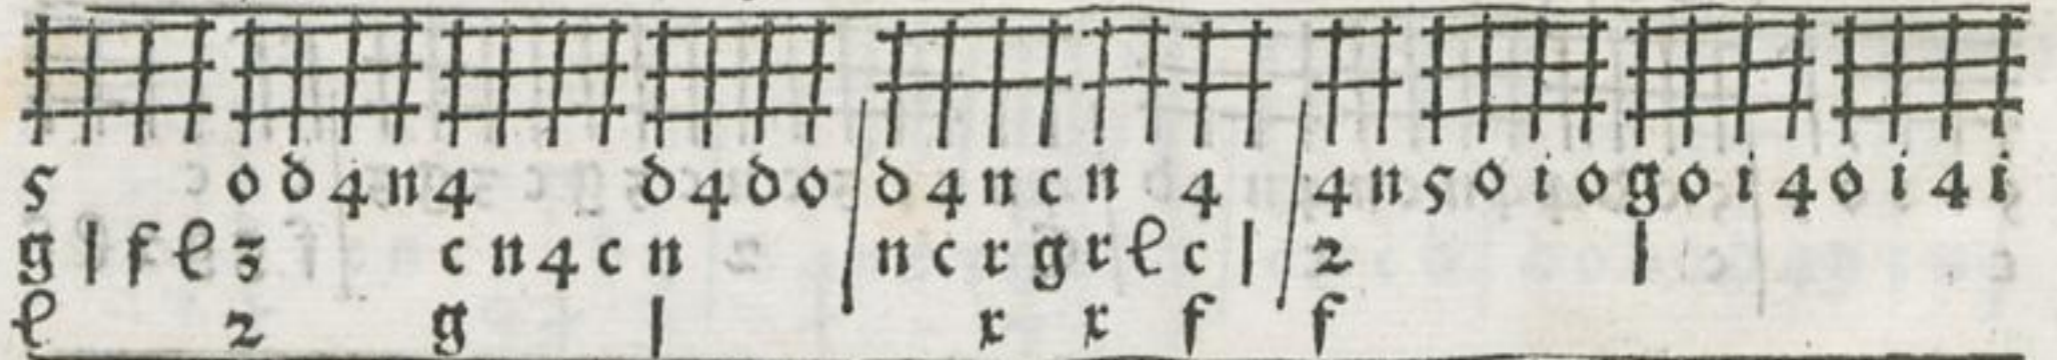 5 o d 4 n 4 d 4 d o d 4 n c n 4 4 n 5 o i o g o i 4 o i 4 i
g l f e 3 c n 4 c n n c r g r e c l 2 l
e 2 g l r r f f